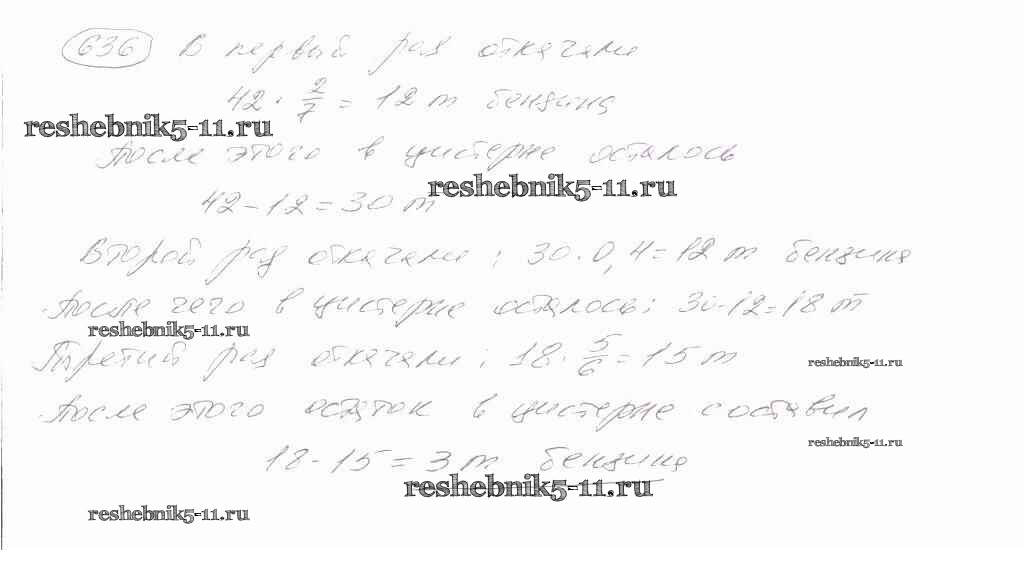 636 В первый раз откачали
42 · 2/7 = 12 т бензина
reshebnik5-11.ru
После этого в цистерне осталось
reshebnik5-11.ru
42 - 12 = 30 т
Второй раз откачали: 30 · 0,4 = 12 т бензина
После чего в цистерне осталось: 30 - 12 = 18 т
reshebnik5-11.ru
Третий раз откачали: 18 · 5/6 = 15 т
reshebnik5-11.ru
После этого остаток в цистерне составил
reshebnik5-11.ru
18 - 15 = 3 т бензина
reshebnik5-11.ru
reshebnik5-11.ru